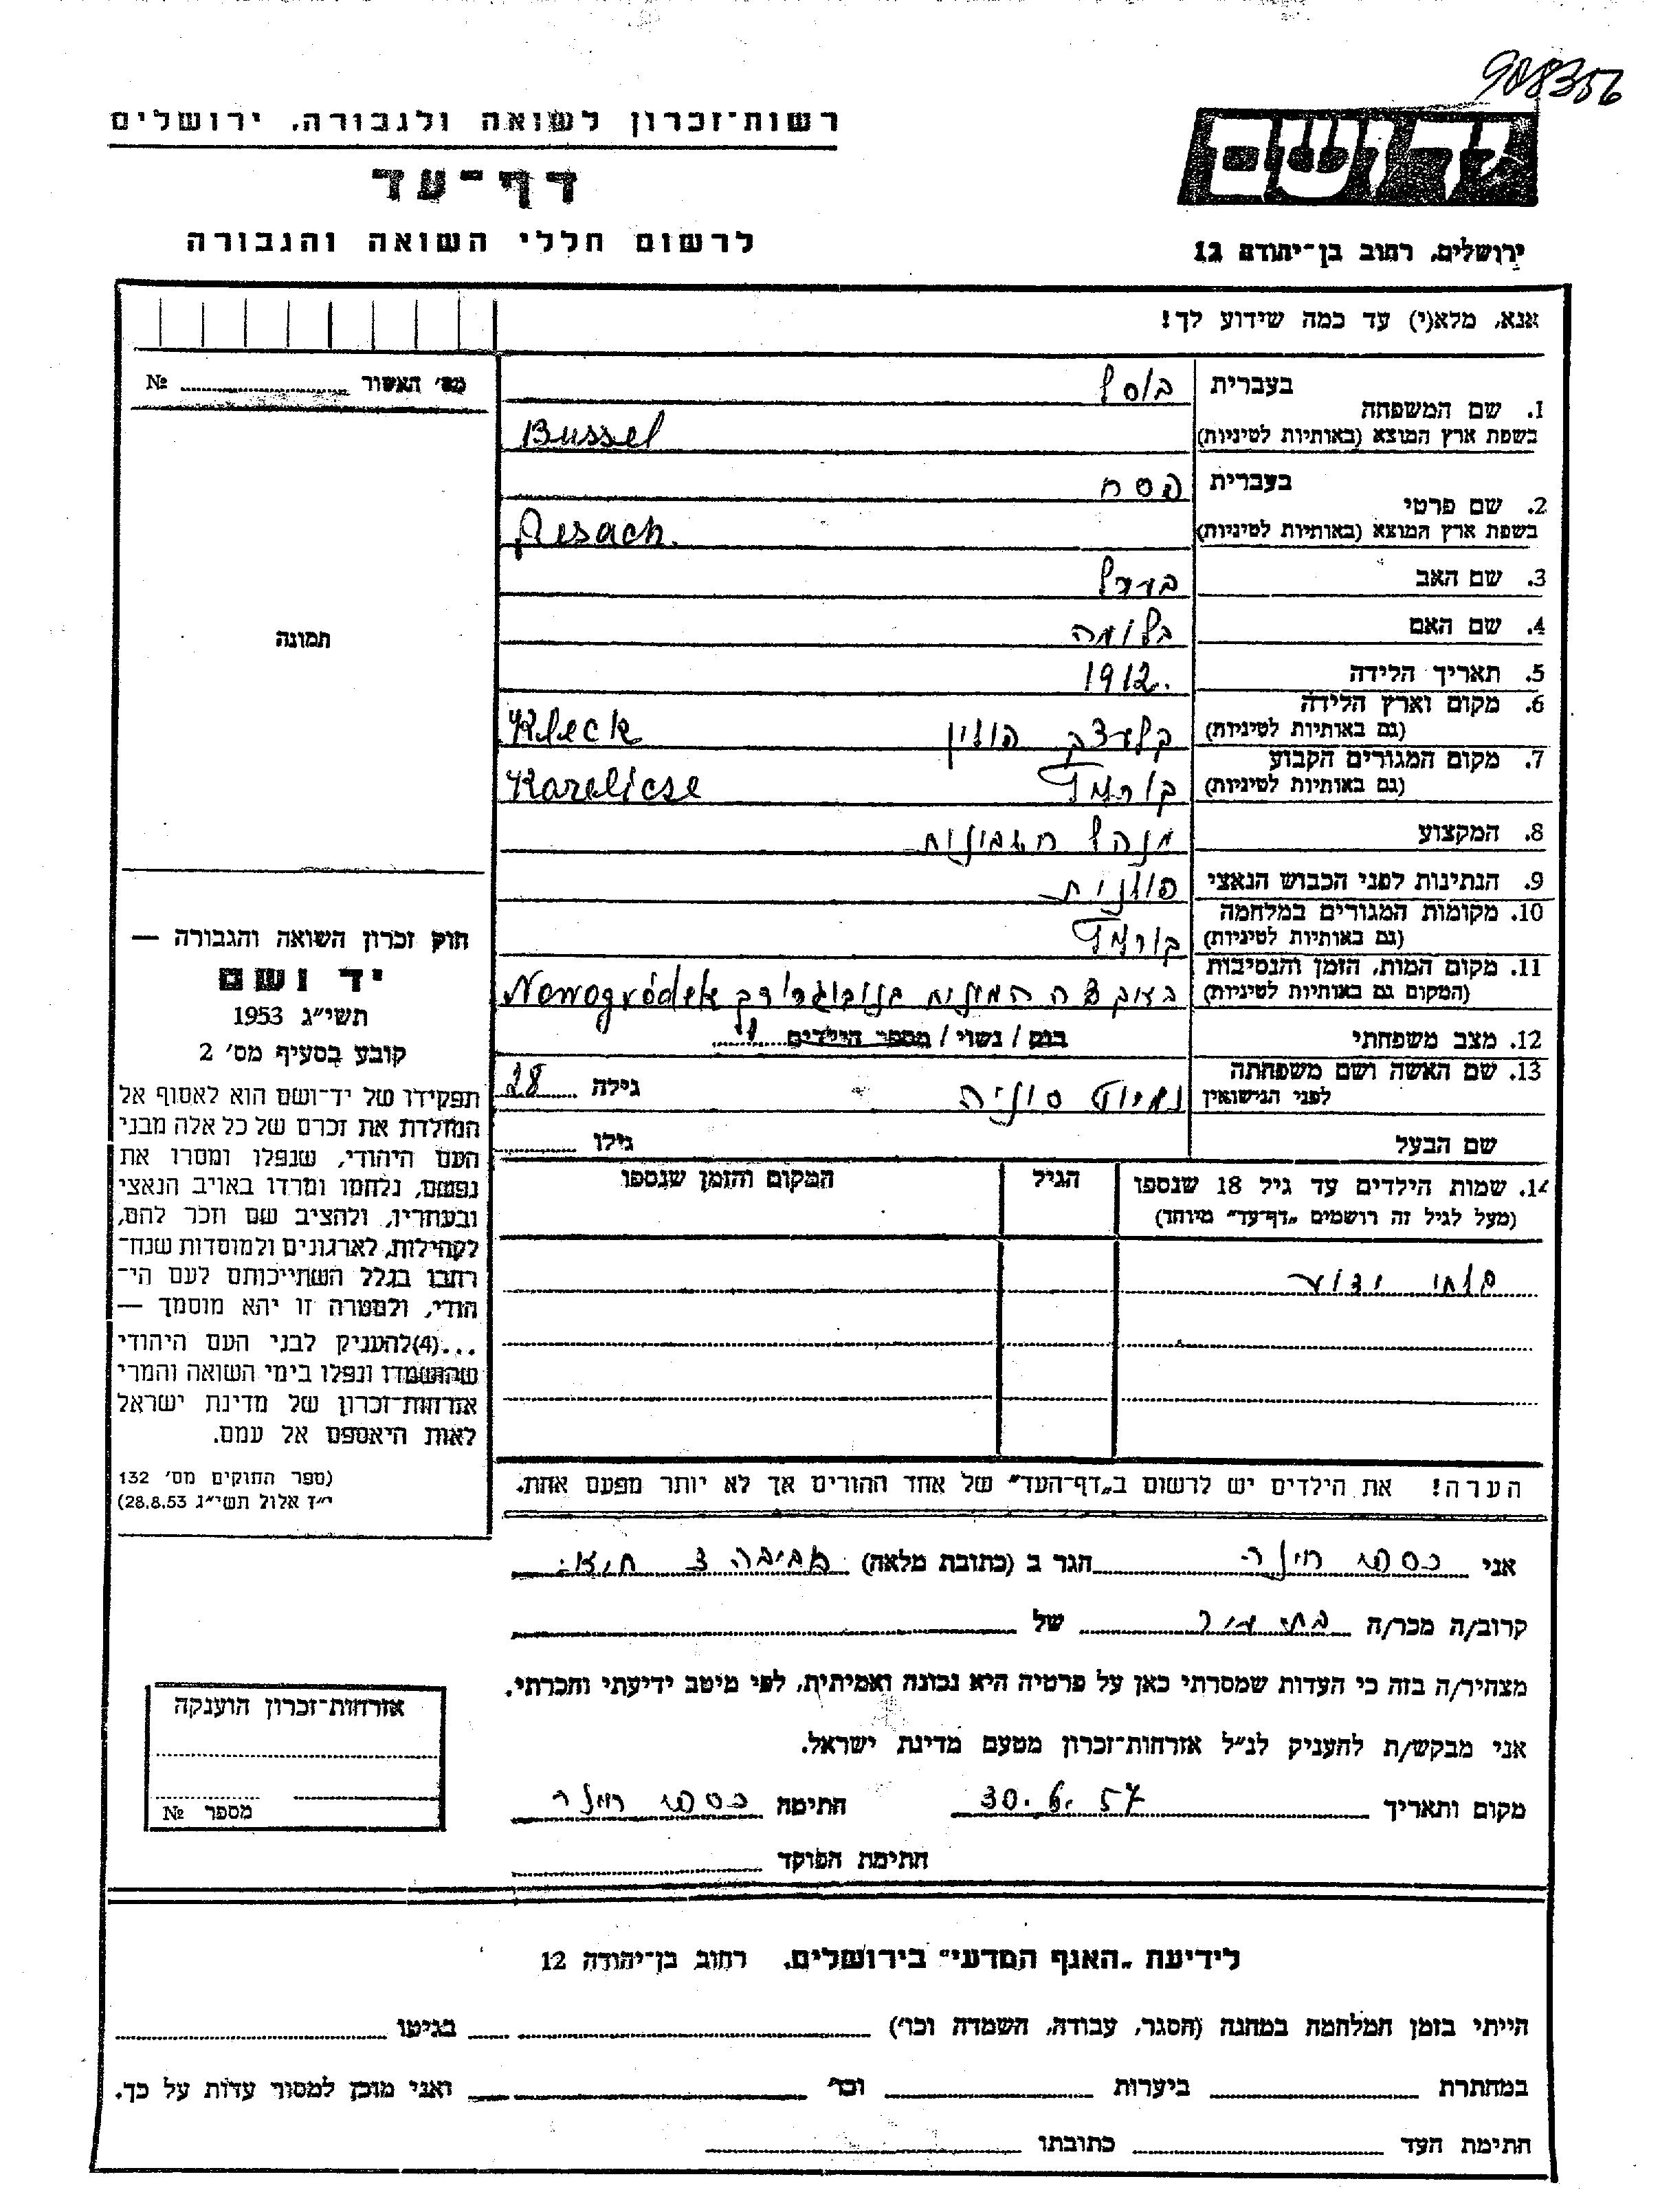 908356
רשות־זכרון לשואה ולגבורה, ירושלים
דף־עד
לרשום חללי השואה והגבורה
יד ושם
ירושלים, רחוב בן־יהודה 12
אנא, מלא(י) עד כמה שידוע לך!
מס׳ האשור ........ №
1. שם המשפחה בעברית בוסל
בשפת ארץ המוצא (באותיות לטיניות) Bussel
2. שם פרטי בעברית פסח
בשפת ארץ המוצא (באותיות לטיניות) Pesach.
3. שם האב בערל
4. שם האם בלומה
5. תאריך הלידה 1912.
6. מקום וארץ הלידה
(גם באותיות לטיניות) קלעצק פולין Kleck
7. מקום המגורים הקבוע
(גם באותיות לטיניות) Karelicse
8. המקצוע מנהל חשבונות
9. הנתינות לפני הכבוש הנאצי פולנית
10. מקומות המגורים במלחמה
(גם באותיות לטיניות)
11. מקום המות, הזמן והנסיבות
(המקום גם באותיות לטיניות) Nowogródek
12. מצב משפחתי רוק / נשוי / מספר הילדים
13. שם האשה ושם משפחתה
לפני הנישואין סוניה גילה 28
שם הבעל גילו ........
14. שמות הילדים עד גיל 18 שנספו
(מעל לגיל זה רושמים „דף־עד״ מיוחד)
הגיל
המקום והזמן שנספו
בלתי ידוע
הערה! את הילדים יש לרשום ב„דף־העד״ של אחד ההורים אך לא יותר מפעם אחת.
תמונה
חוק זכרון השואה והגבורה —
יד ושם
תשי״ג 1953
קובע בסעיף מס׳ 2
תפקידו של יד־ושם הוא לאסוף אל
המולדת את זכרם של כל אלה מבני
העם היהודי, שנפלו ומסרו את
נפשם, נלחמו ומרדו באויב הנאצי
ובעוזריו, ולהציב שם וזכר להם,
לקהילות, לארגונים ולמוסדות שנח־
רבו בגלל השתייכותם לעם הי־
הודי, ולמטרה זו יהא מוסמך —
...(4)להעניק לבני העם היהודי
שהושמדו ונפלו בימי השואה והמרי
אזרחות־זכרון של מדינת ישראל
לאות היאספם אל עמם.
(ספר החוקים מס׳ 132
י״ז אלול תשי״ג 28.8.53)
אני הגר ב (כתובת מלאה)
קרוב/ה מכר/ה של
מצהיר/ה בזה כי העדות שמסרתי כאן על פרטיה היא נכונה ואמיתית, לפי מיטב ידיעתי והכרתי.
אני מבקש/ת להעניק לנ״ל אזרחות־זכרון מטעם מדינת ישראל.
מקום ותאריך 30.6.57 חתימה
חתימת הפוקד
אזרחות־זכרון הוענקה
מספר №
לידיעת „האגף המדעי״ בירושלים, רחוב בן־יהודה 12
הייתי בזמן המלחמה במחנה (הסגר, עבודה, השמדה וכו׳) ........ בגיטו ........
במחתרת ........ ביערות ........ וכו׳ ........ ואני מוכן למסור עדות על כך.
חתימת העד ........ כתובתו ........